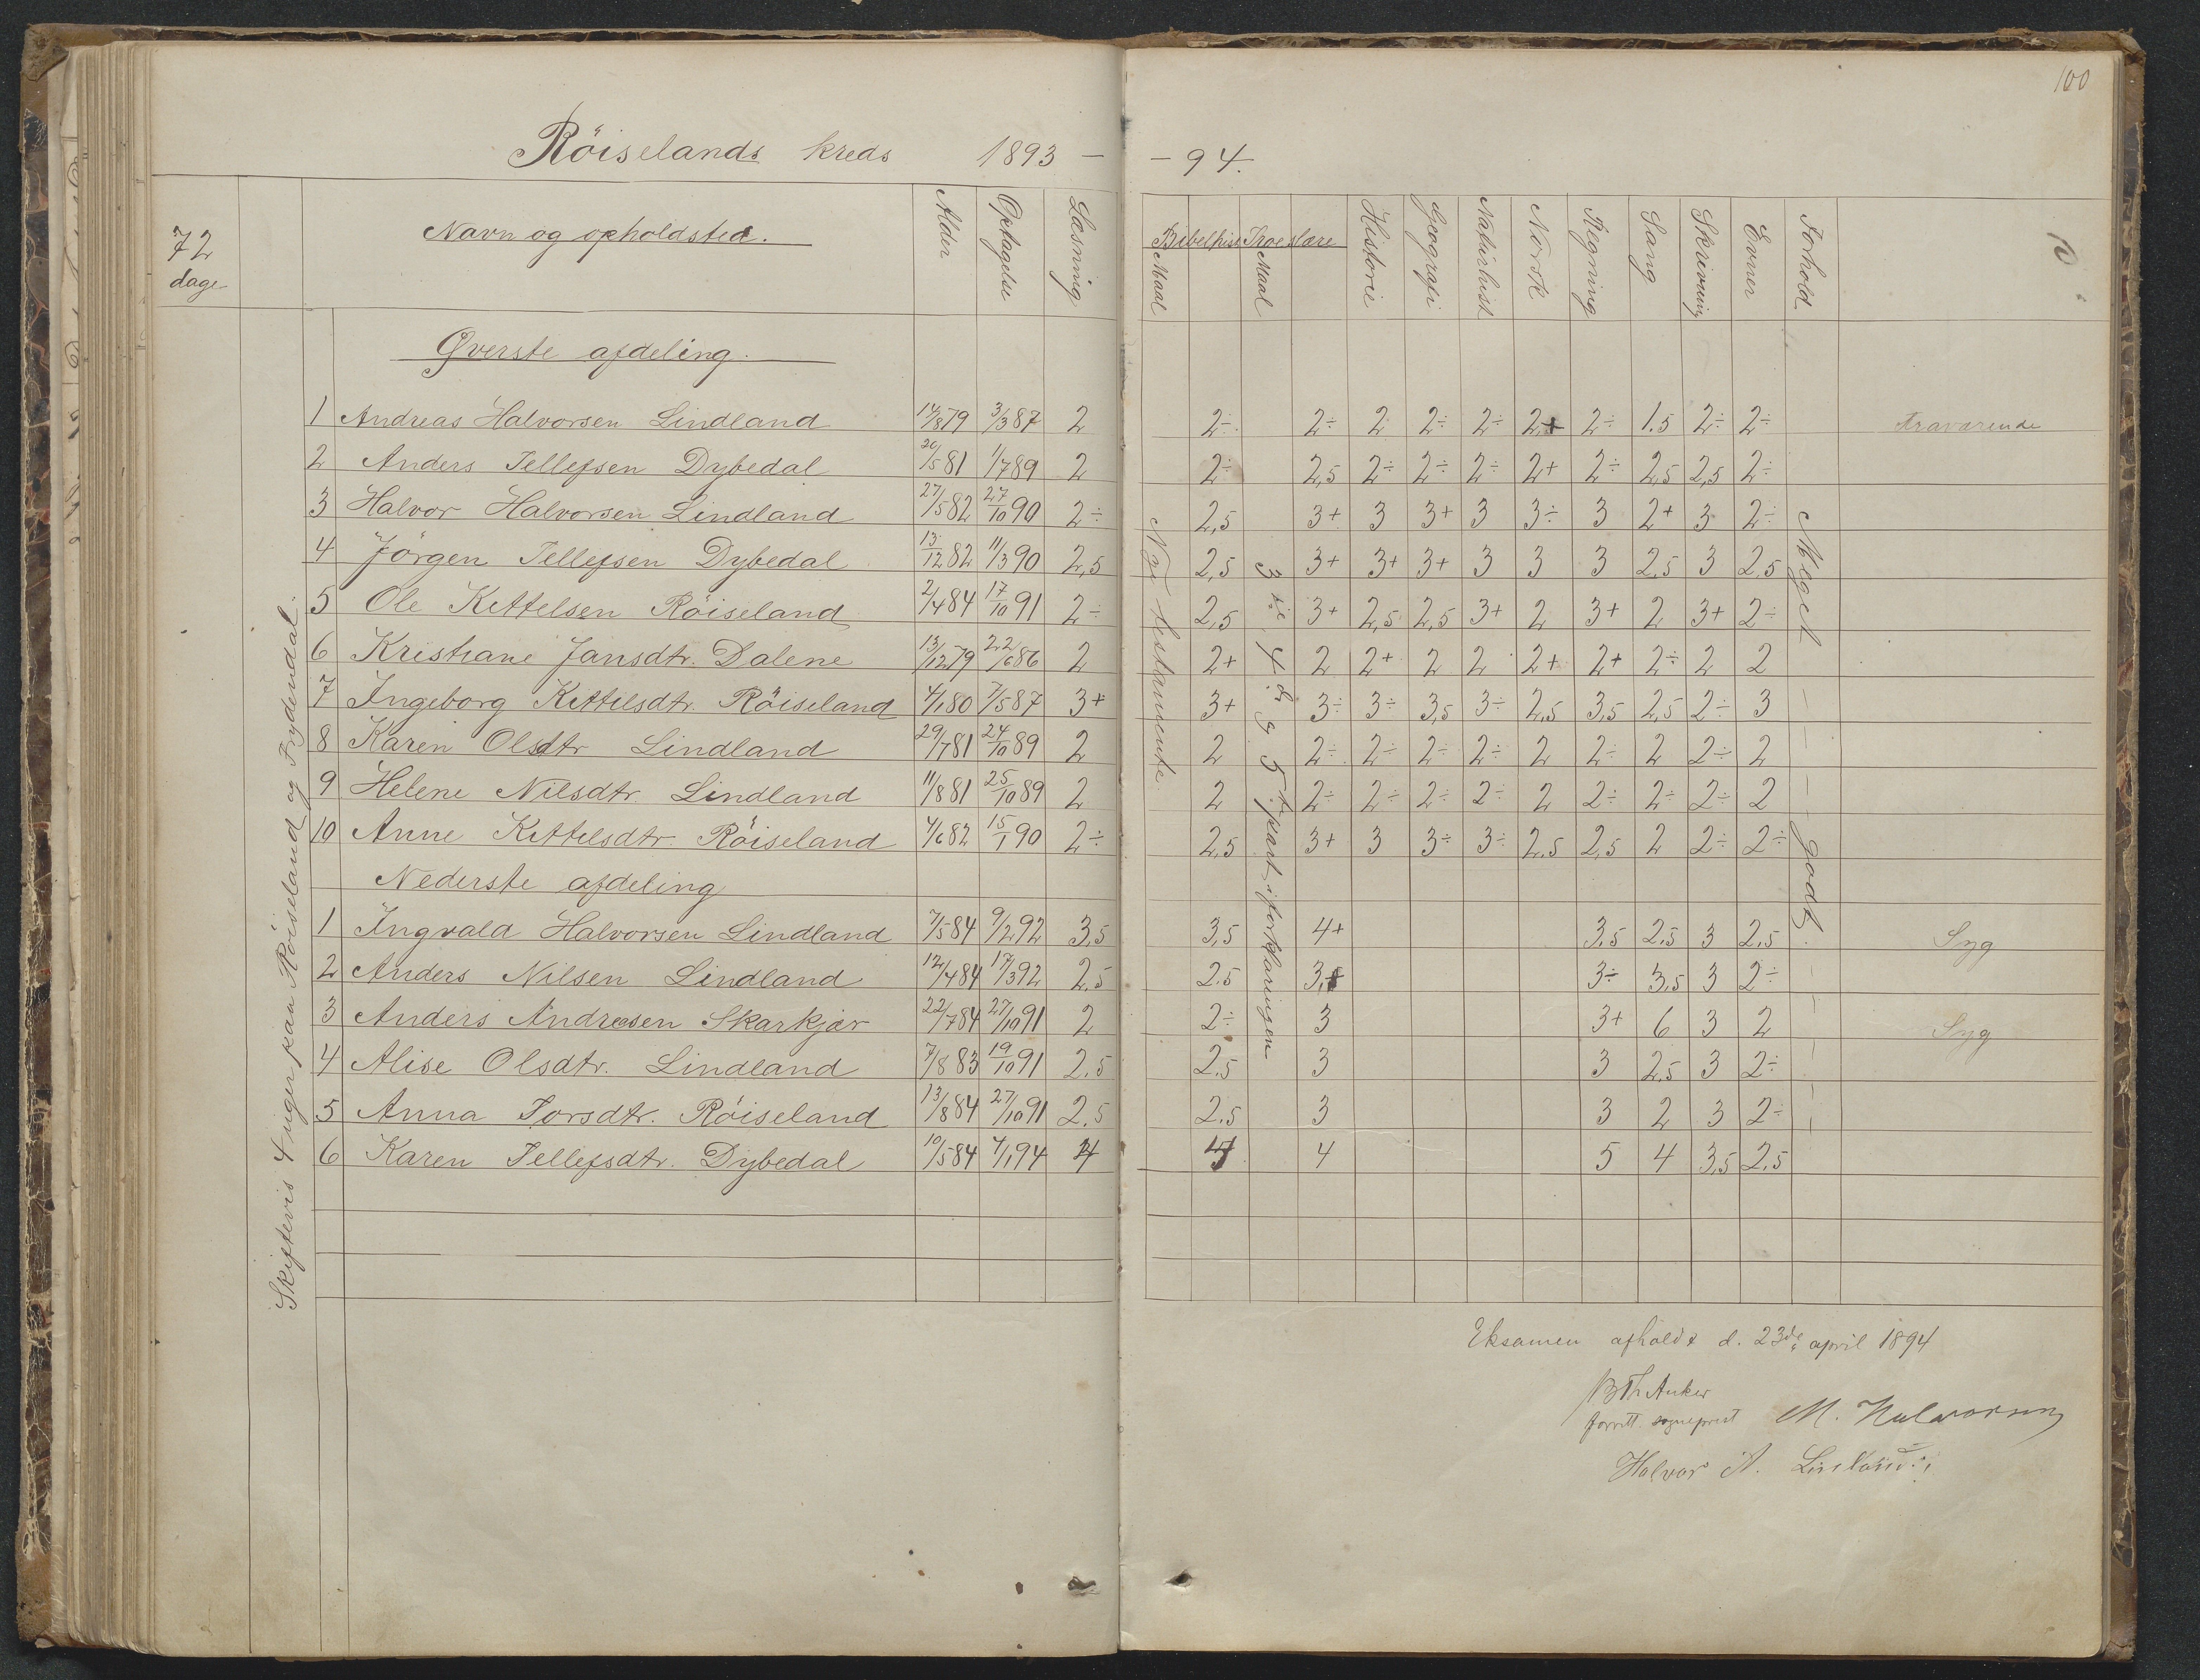 100
Röiselands kreds 1893 — — 94.
72 dage
Navn og opholdsted. Alder Optagelse Læsning Bibelhist Maal Troeslære Maal Historie Geografi Naturhist Norsk Regning Sang Skrivning Evner Forhold
Skiftevis 4 uger paa Röiseland og Frydendal.
Øverste afdeling.
1 Andreas Halvorsen Lindland 14/8 79 3/3 87 2 2÷ 2÷ 2 2÷ 2÷ 2+ 2÷ 1.5 2÷ 2÷ fraværende
2 Anders Tellefsen Dybedal 20/5 81 1/7 89 2 2÷ 2,5 2÷ 2÷ 2÷ 2+ 2÷ 2,5 2,5 2÷
3 Halvor Halvorsen Lindland 27/5 82 27/10 90 2÷ 2,5 3+ 3 3+ 3 3÷ 3 2+ 3 2÷
4 Jörgen Tellefsen Dybedal 13/12 82 11/3 90 2,5 2,5 3+ 3+ 3+ 3 3 3 2,5 3 2,5
5 Ole Kittelsen Röiseland 2/4 84 17/10 91 2÷ 2,5 3+ 2,5 2,5 3+ 2 3+ 2 3+ 2÷
6 Kristiane Jansdtr. Dalene 13/12 79 22/6 86 2 2+ 2 2+ 2 2 2+ 2+ 2÷ 2 2
7 Ingeborg Kittilsdtr. Röiseland 4/1 80 7/5 87 3+ 3+ 3÷ 3÷ 3,5 3÷ 2,5 3,5 2,5 2÷ 3
8 Karen Olsdtr Lindland 29/7 81 24/10 89 2 2 2÷ 2÷ 2÷ 2÷ 2 2÷ 2 2÷ 2
9 Helene Nilsdtr. Lindland 11/8 81 25/10 89 2 2 2÷ 2÷ 2÷ 2÷ 2 2÷ 2÷ 2÷ 2
10 Anne Kittelsdtr. Röiseland 4/6 82 15/1 90 2÷ 2,5 3+ 3 3÷ 3÷ 2.5 2,5 2 2÷ 2÷
Nederste afdeling
1 Ingvald Halvorsen Lindland 7/5 84 9/2 92 3,5 3,5 4+ 3,5 2,5 3 2,5 Syg
2 Anders Nilsen Lindland 12/4 84 17/3 92 2,5 2.5 3,+ 3÷ 3,5 3 2÷
3 Anders Andresen Skarkjær 22/7 84 27/10 91 2 2÷ 3 3+ 6 3 2 Syg
4 Alise Olsdtr. Lindland 7/8 83 19/10 91 2.5 2.5 3 3 2,5 3 2÷
5 Anna Torsdtr. Röiseland 13/8 84 27/10 91 2,5 2,5 3 3 2 3 2÷
6 Karen Tellefsdtr. Dybedal 10/5 84 4/1 94 4 4 5 4 3,5 2,5
Nye testamente
3die 4de og 5te part i forklaringen
Meget godt.
Eksamen afholdt d. 23de april 1894
B Th Anker
sogneprest M. Halvorsen
Halvor A. Lindland